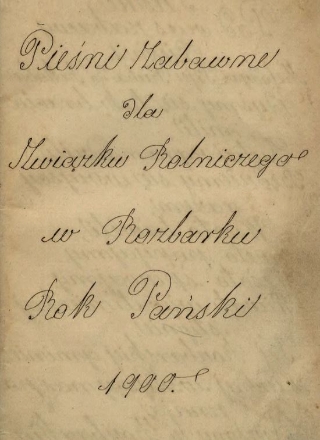 Pieśni Zabawne
dla
Związku Rolniczego
w Rozbarku
Rok Pański
1900.